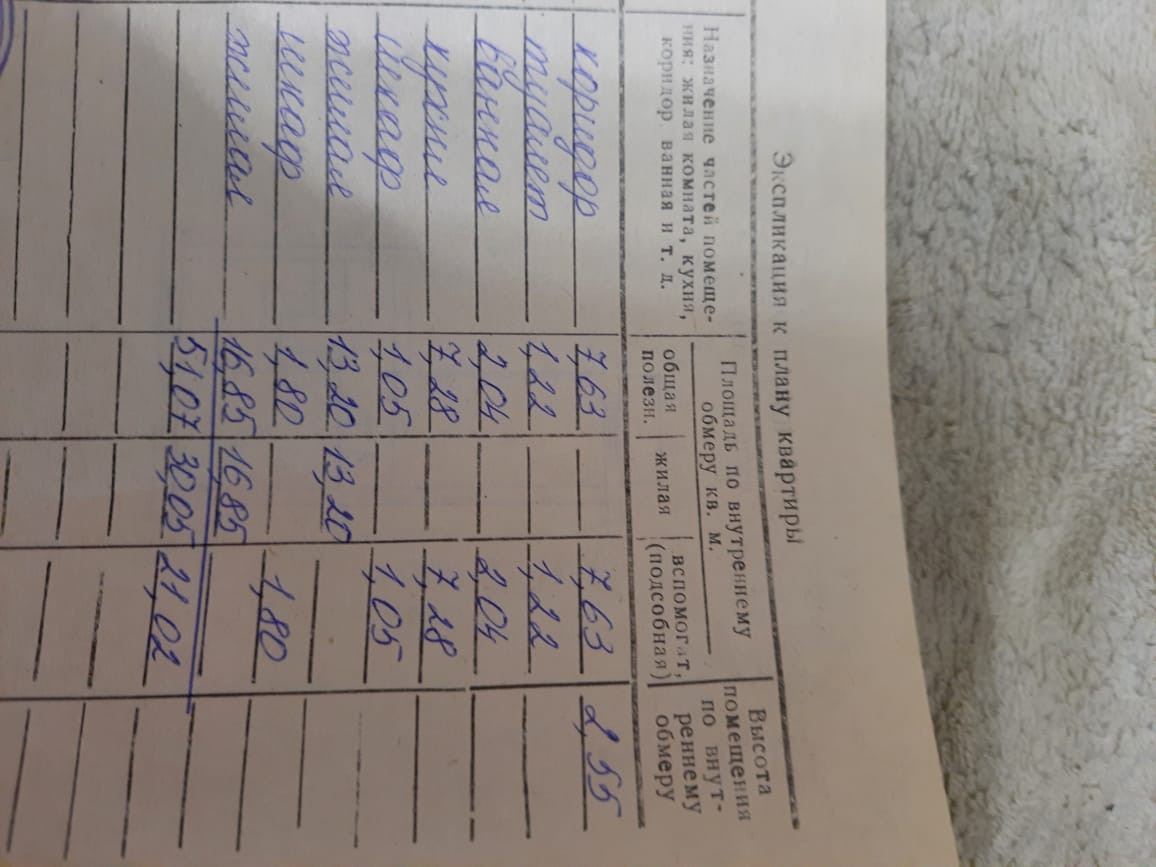 Экспликация к плану квартиры
Назначение частей помеще-
ния: жилая комната, кухня,
коридор ванная и т. д.
Площадь по внутреннему
обмеру кв. м.
общая
полезн.
жилая
вспомогат,
(подсобная)
Высота
помещения
по внут-
реннему
обмеру
коридор 7,63 7,63 2,55
туалет 1,22 1,22
ванная 2,04 2,04
кухня 7,28 7,28
шкаф 1,05 1,05
жилая 13,20 13,20
шкаф 1,80 1,80
жилая 16,85 16,85
51,07 30,05 21,02